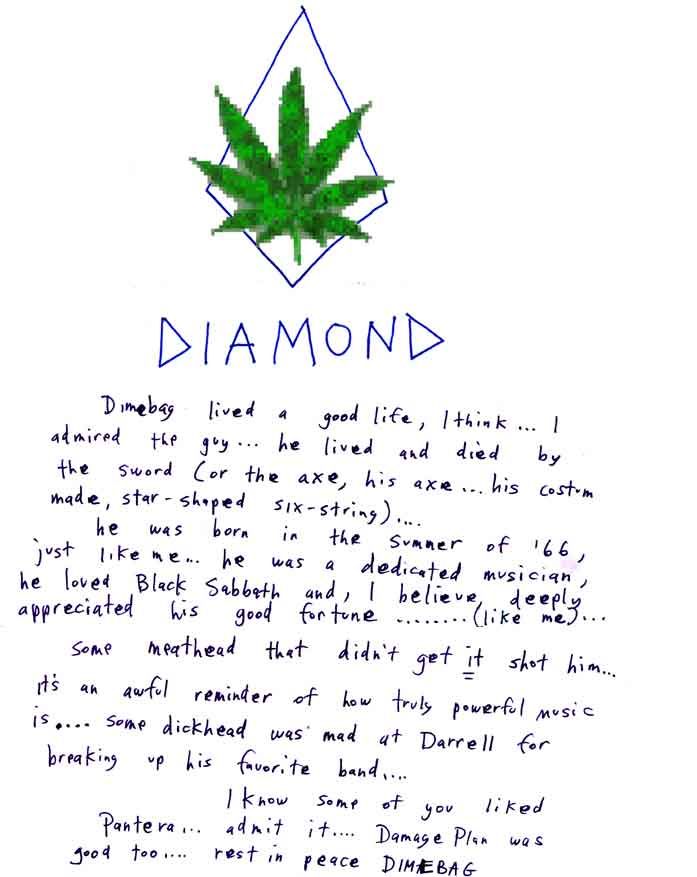 DIAMOND
Dimebag lived a good life, I think... I
admired the guy... he lived and died by
the sword (or the axe, his axe... his costum
made, star-shaped six-string)....
he was born in the summer of '66,
just like me... he was a dedicated musician,
he loved Black Sabbath and, I believe, deeply
appreciated his good fortune ........(like me)...
some meathead that didn't get it shot him...
it's an awful reminder of how truly powerful music
is.... some dickhead was mad at Darrell for
breaking up his favorite band....
I know some of you liked
Pantera... admit it.... Damage Plan was
good too.... rest in peace DIMEBAG